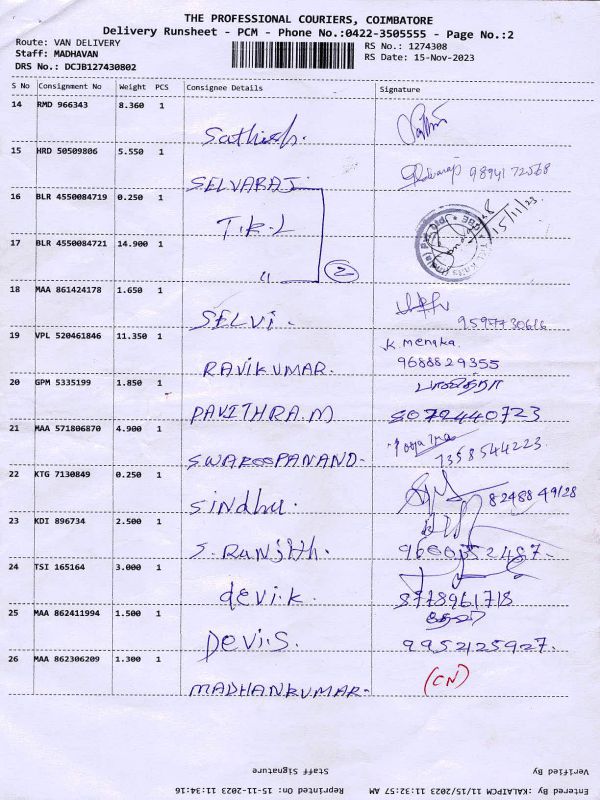 THE PROFESSIONAL COURIERS, COIMBATORE
Delivery Runsheet - PCM - Phone No.:0422-3505555 - Page No.:2
Route: VAN DELIVERY
RS No.: 1274308
Staff: MADHAVAN
RS Date: 15-Nov-2023
DRS No.: DCJB127430802
S No Consignment No Weight PCS Consignee Details Signature
14 RMD 966343 8.360 1
Sathish.
15 HRD 50509806 5.550 1
SELVARAJ 9894172568
16 BLR 4550084719 0.250 1
T.K.L 15/11/23
17 BLR 4550084721 14.900 1
" 2
18 MAA 861424178 1.650 1
SELVI. 9597730616
19 VPL 520461846 11.350 1
K menaka.
RAVIKUMAR. 9688829355
20 GPM 5335199 1.850 1
பவித்ரா
PAVITHRA.M 8072440723
21 MAA 571806870 4.900 1
SWAROOPANAND. 7358544223
22 KTG 7130849 0.250 1
Sindhu. 8248849128
23 KDI 896734 2.500 1
S.Ranjith. 9600552487.
24 TSI 165164 3.000 1
devi.k. 8778961718
25 MAA 862411994 1.500 1
தேவி
Devi.S. 9952125927.
26 MAA 862306209 1.300 1
MADHANKUMAR. (CN)
Staff Signature
Verified By
Reprinted On: 15-11-2023 11:34:16
Entered By:KALAIPCM 11/15/2023 11:32:57 AM